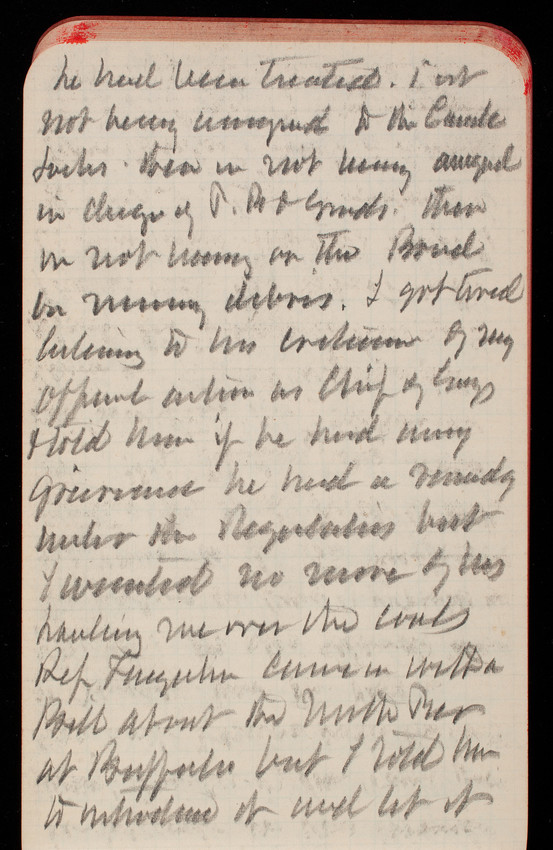 he had been treated. 1st
not being assigned to the Canal
Locks then in not being assigned
in charge of P. B & Grnds. then
in not being on the Board
on mining debris. I got tired
listening to his criticism of my
official action as Chief of Engs
& told him if he had any
grievance he had a remedy
under the Regulations but
I wanted no more of his
hauling me over the coals
Rep Farquhar came in with a
Bill about the North Pier
at Buffalo but I told him
to introduce it and let it